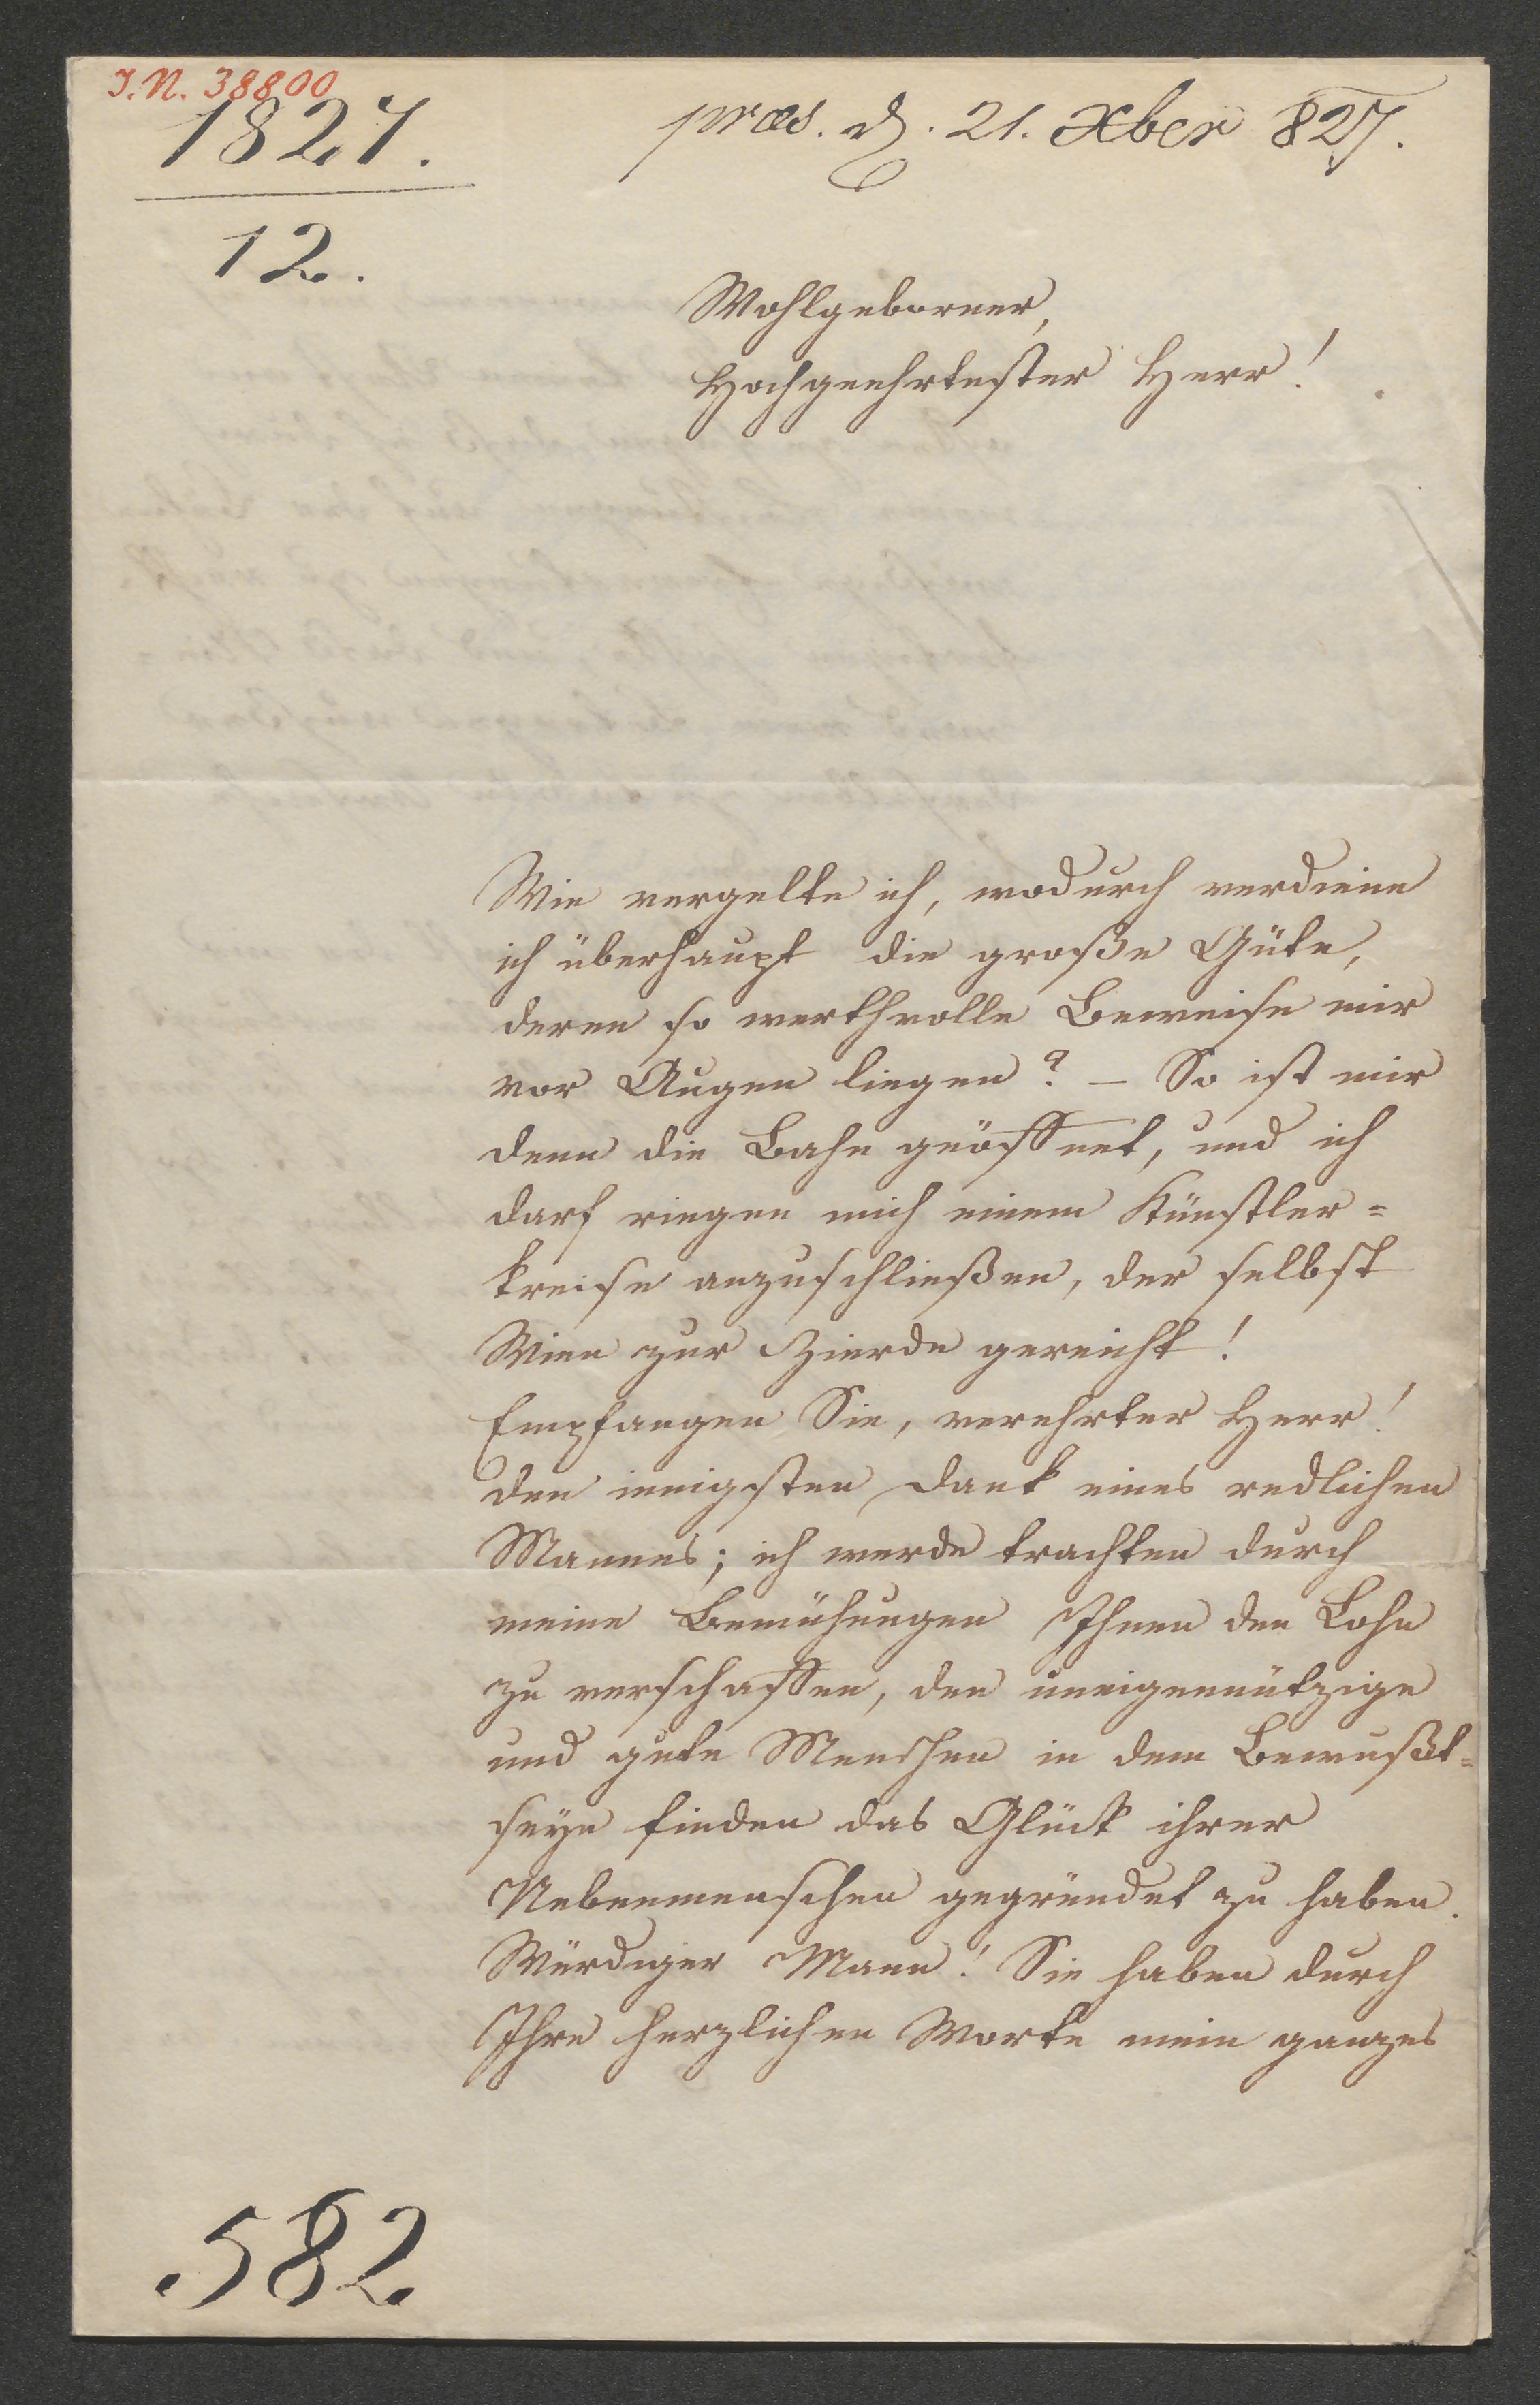 I.N. 38800
1827.
12.
præs. d. 21. Xber 827.
Wohlgeborner,
Hochgeehrtester Herr!
Wie vergelte ich, wodurch verdiene
ich überhaupt die große Güte,
deren so werthvolle Beweise mir
vor Augen liegen? – So ist mir
denn die Bahn geöffnet, und ich
darf ringen mich einem Künstler=
kreise anzuschließen, der selbst
Wien zur Zierde gereicht!
Empfangen Sie, verehrter Herr!
den innigsten Dank eines redlichen
Mannes; ich werde trachten durch
meine Bemühungen Ihnen den Lohn
zu verschaffen, den uneigennützige
und gute Menschen in dem Bewußt=
seyn finden das Glück ihrer
Nebenmenschen gegründet zu haben.
Würdiger Mann! Sie haben durch
Ihre herzlichen Worte mein ganzes
582